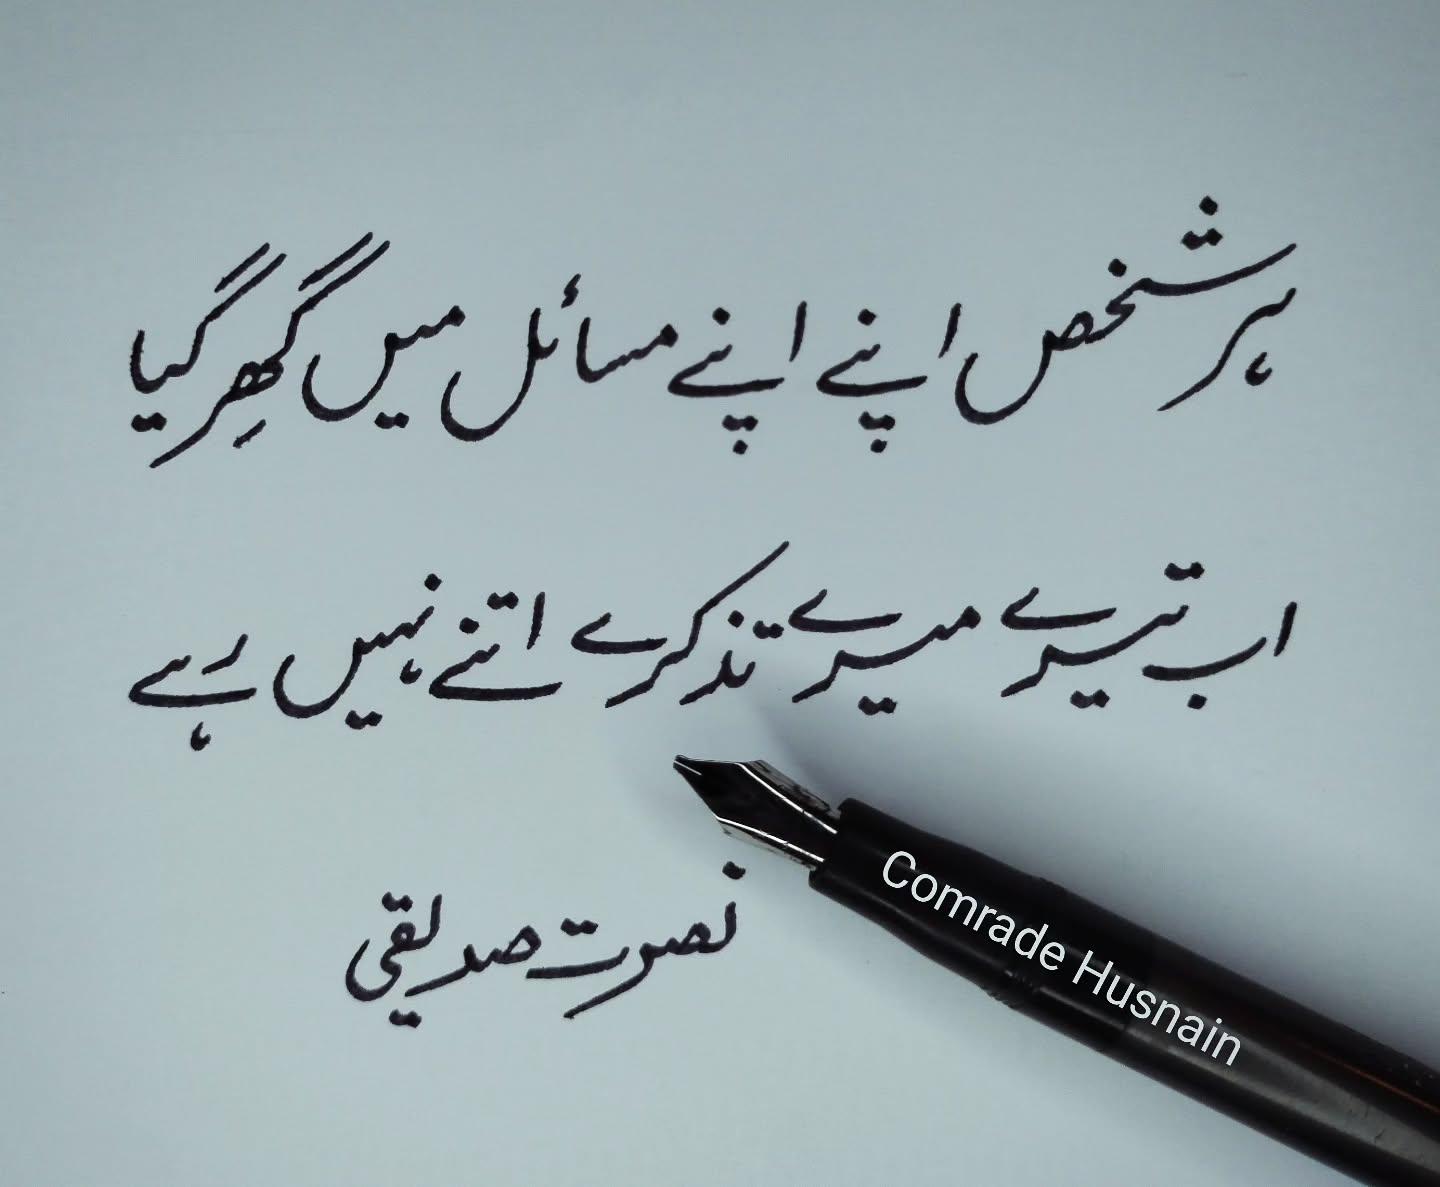 ہر شخص اپنے اپنے مسائل میں گھِر گیا
اب تیرے میرے تذکرے اتنے نہیں رہے
نصرت صدیقی
Comrade Husnain